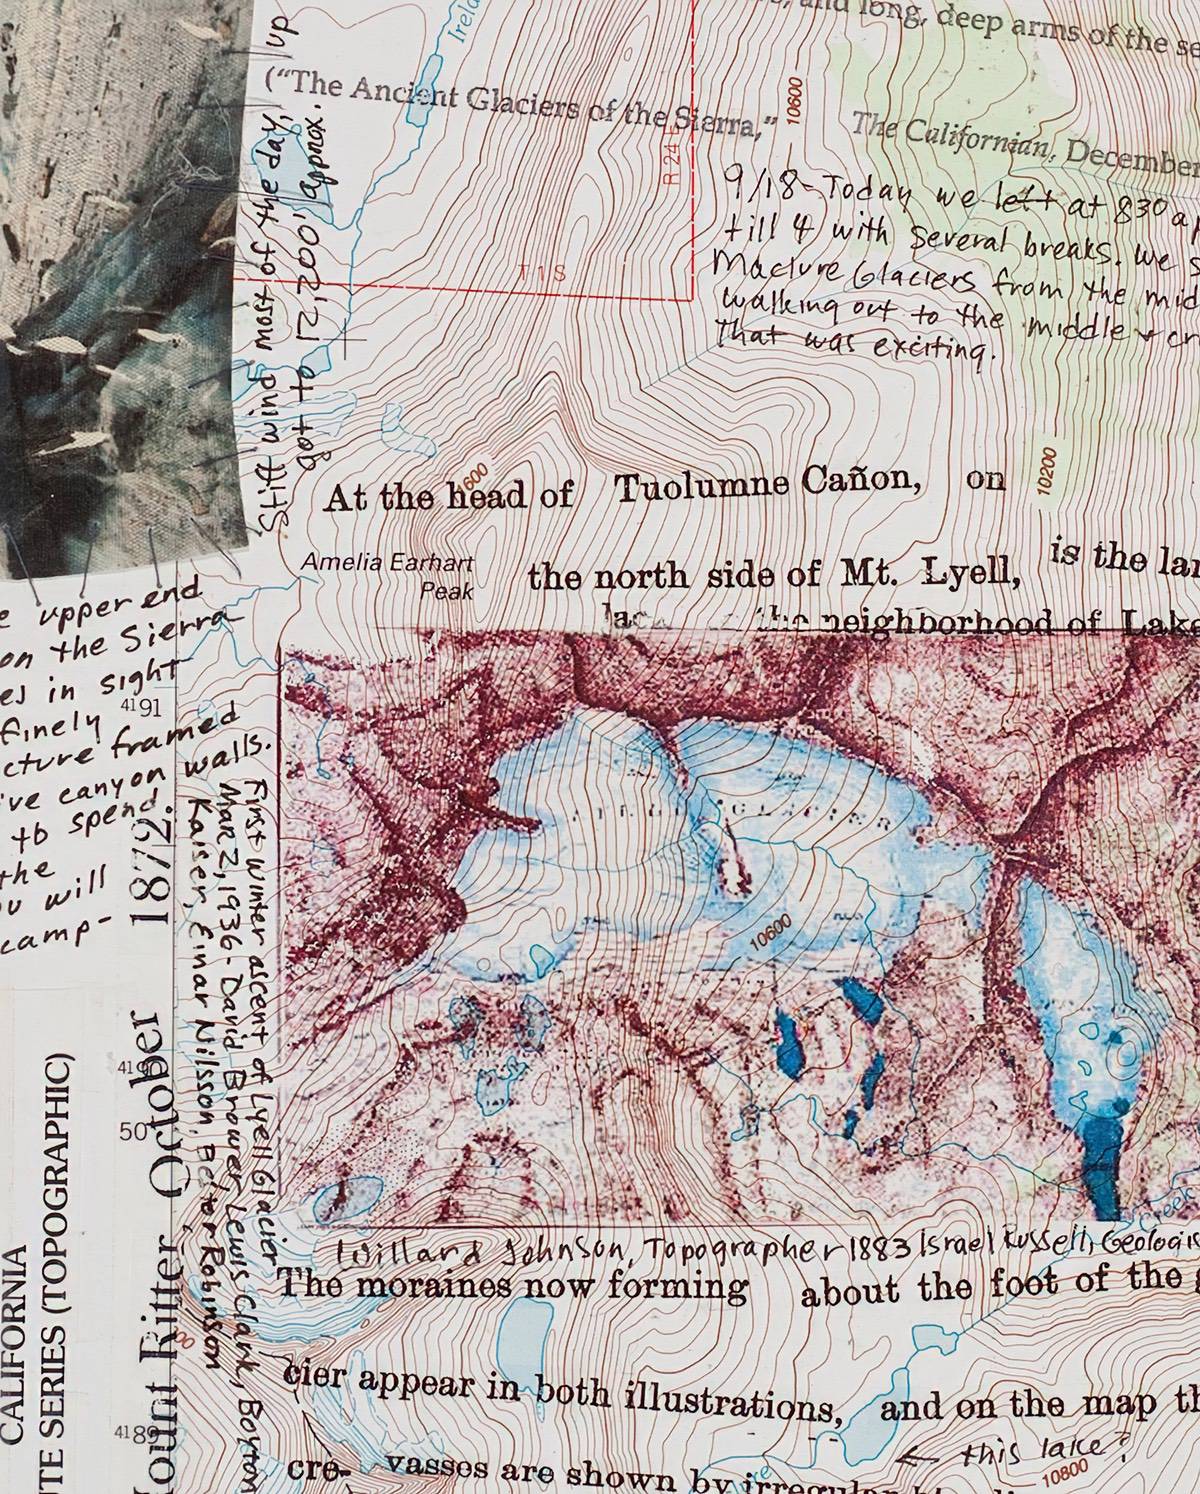 , and long, deep arms of the se
Irela
("The Ancient Glaciers of the Sierra,"
The Californian, December
10600
R 24 E
T 1 S
up
Still wind most of the day,
got to 12,000', approx.
9/18- Today we left at 8 30 a
till 4 with several breaks. We s
Maclure Glaciers from the mid
walking out to the middle + cr
That was exciting.
10200
600
At the head of Tuolumne Cañon, on
Amelia Earhart
Peak
the north side of Mt. Lyell, is the lar
the neighborhood of Lake
e upper end
on the Sierra
es in sight
finely
cture framed
've canyon walls.
to spend
the
ou will
camp-
4191
GLACIER
10600
First winter ascent of Lyell Glacier
Mar 2, 1936- David Brower, Lewis Clark, Boynton
Kaiser, Einar Nilsson, Bestor Robinson
419
50
Mount Ritter October 1872.
CALIFORNIA
TE SERIES (TOPOGRAPHIC)
Creek
Willard Johnson, Topographer 1883 Israel Russell, Geologis
The moraines now forming about the foot of the g
cier appear in both illustrations, and on the map th
← this lake?
4189
10800
cre- vasses are shown by irregular